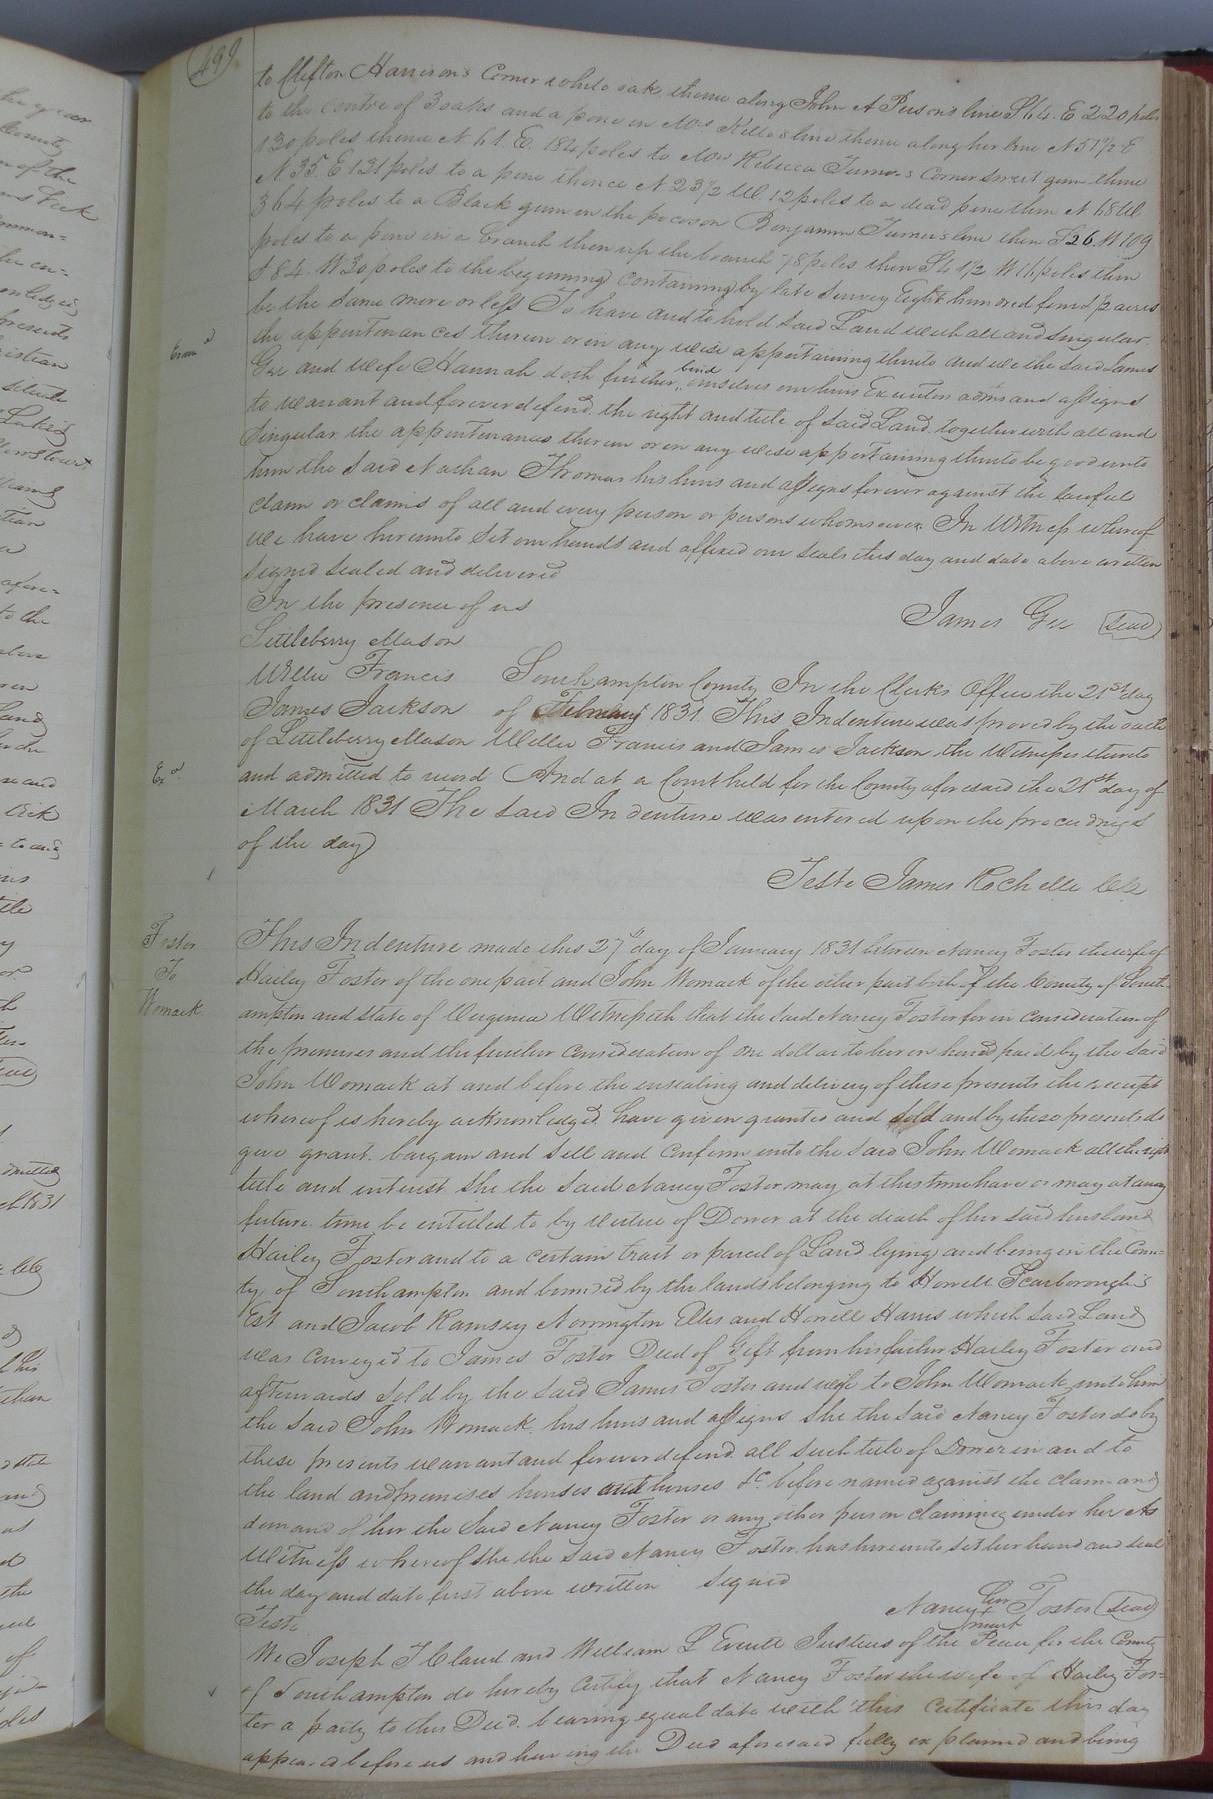 499
to Clifton Harrison's Corner white oak, thence along John A Persons line S 64. E 220 poles
to the centre of 3 oaks and a pine in Mrs Kello's line thence along her line N 57 1/2 E
130 poles thence N 61. E. 184 poles to Mrs Rebecca Turners Corner sweet gum thence
N 35. E 131 poles to a pine thence N 23 1/2 W. 12 poles to a dead pine then N 68 W
364 poles to a Black gum in the pocoson Benjamin Turners line then S 26. W 109
poles to a pine in a branch then up the branch 78 poles then S 41 1/2 W 16 poles then
S 84. W 30 poles to the beginning Containing by late Survey Eight hundred four 1/2 acres
be the Same more or less To have and to hold Said Land with all and Singular
Exam'd
the appurtenances therein or in any wise appertaining thereto and we the Said James
Gee and wife Hannah doth further bind ourselves our heirs Executors adms and assigns
to warrant and forever defend the right and title of Said Land together with all and
Singular the appurtenances therein or in any wise appertaining thereto be good unto
him the Said Nathan Thomas his heirs and assigns forever against the lawful
Claim or claims of all and every person or persons whomsoever. In Witness whereof
we have hereunto Set our hands and affixed our Seals this day and date above written
Signed Sealed and delivered
In the presence of us
James Gee Seal
Littleberry Mason
Willie Francis Southampton County In the Clerks Office the 21st day
James Jackson of February 1831. This Indenture was proved by the oath
of Littleberry Mason Willie Francis and James Jackson the Witnesses thereto
Exd
and admitted to record And at a Court held for the County aforesaid the 21st day of
March 1831 The Said Indenture was entered upon the proceedings
of the day
Teste James Rochelle Clk
Foster
To
Womack
This Indenture made this 27th day of January 1831 between Nancy Foster the wife of
Hailey Foster of the one part and John Womack of the other part both of the County of South
ampton and State of Virginia Witnesseth that the Said Nancy Foster for in Consideration of
the premises and the further Consideration of one dollar to her in hand paid by the Said
John Womack at and before the ensealing and delivery of these presents the receipt
whereof is hereby acknowledged have given granted and Sold and by these presents do
give grant bargain and Sell and Confirm unto the Said John Womack all the right
title and interest She the Said Nancy Foster may at this time have or may at any
future time be entitled to by virtue of Dower at the death of her Said husband
Hailey Foster and to a certain tract or parcel of Land lying and being in the Coun=
ty of Southampton and bounded by the lands belonging to Howell Scarborough's
Est and Jacob Ramsey Norrington Ellis and Howell Harris which Said Land
was Conveyed to James Foster Deed of Gift from his father Hailey Foster and
afterwards Sold by the Said James Foster and wife to John Womack unto him
the Said John Womack his heirs and assigns She the Said Nancy Foster do by
these presents warrant and forever defend all Such title of Dower in and to
the land and premises houses and houses &c before named against the Claim and
demand of her the Said Nancy Foster or any other person claiming under her As
Witness whereof She the Said Nancy Foster has hereunto Set her hand and Seal
the day and date first above written Signed
Nancy her X mark Foster Seal
Teste
We Joseph T Claud and William L Everitt Justices of the Peace for the County
of Southampton do hereby Certify that Nancy Foster the wife of Hailey Fos=
ter a party to this Deed bearing equal date with this Certificate this day
appeared before us and having the Deed aforesaid fully explained and being